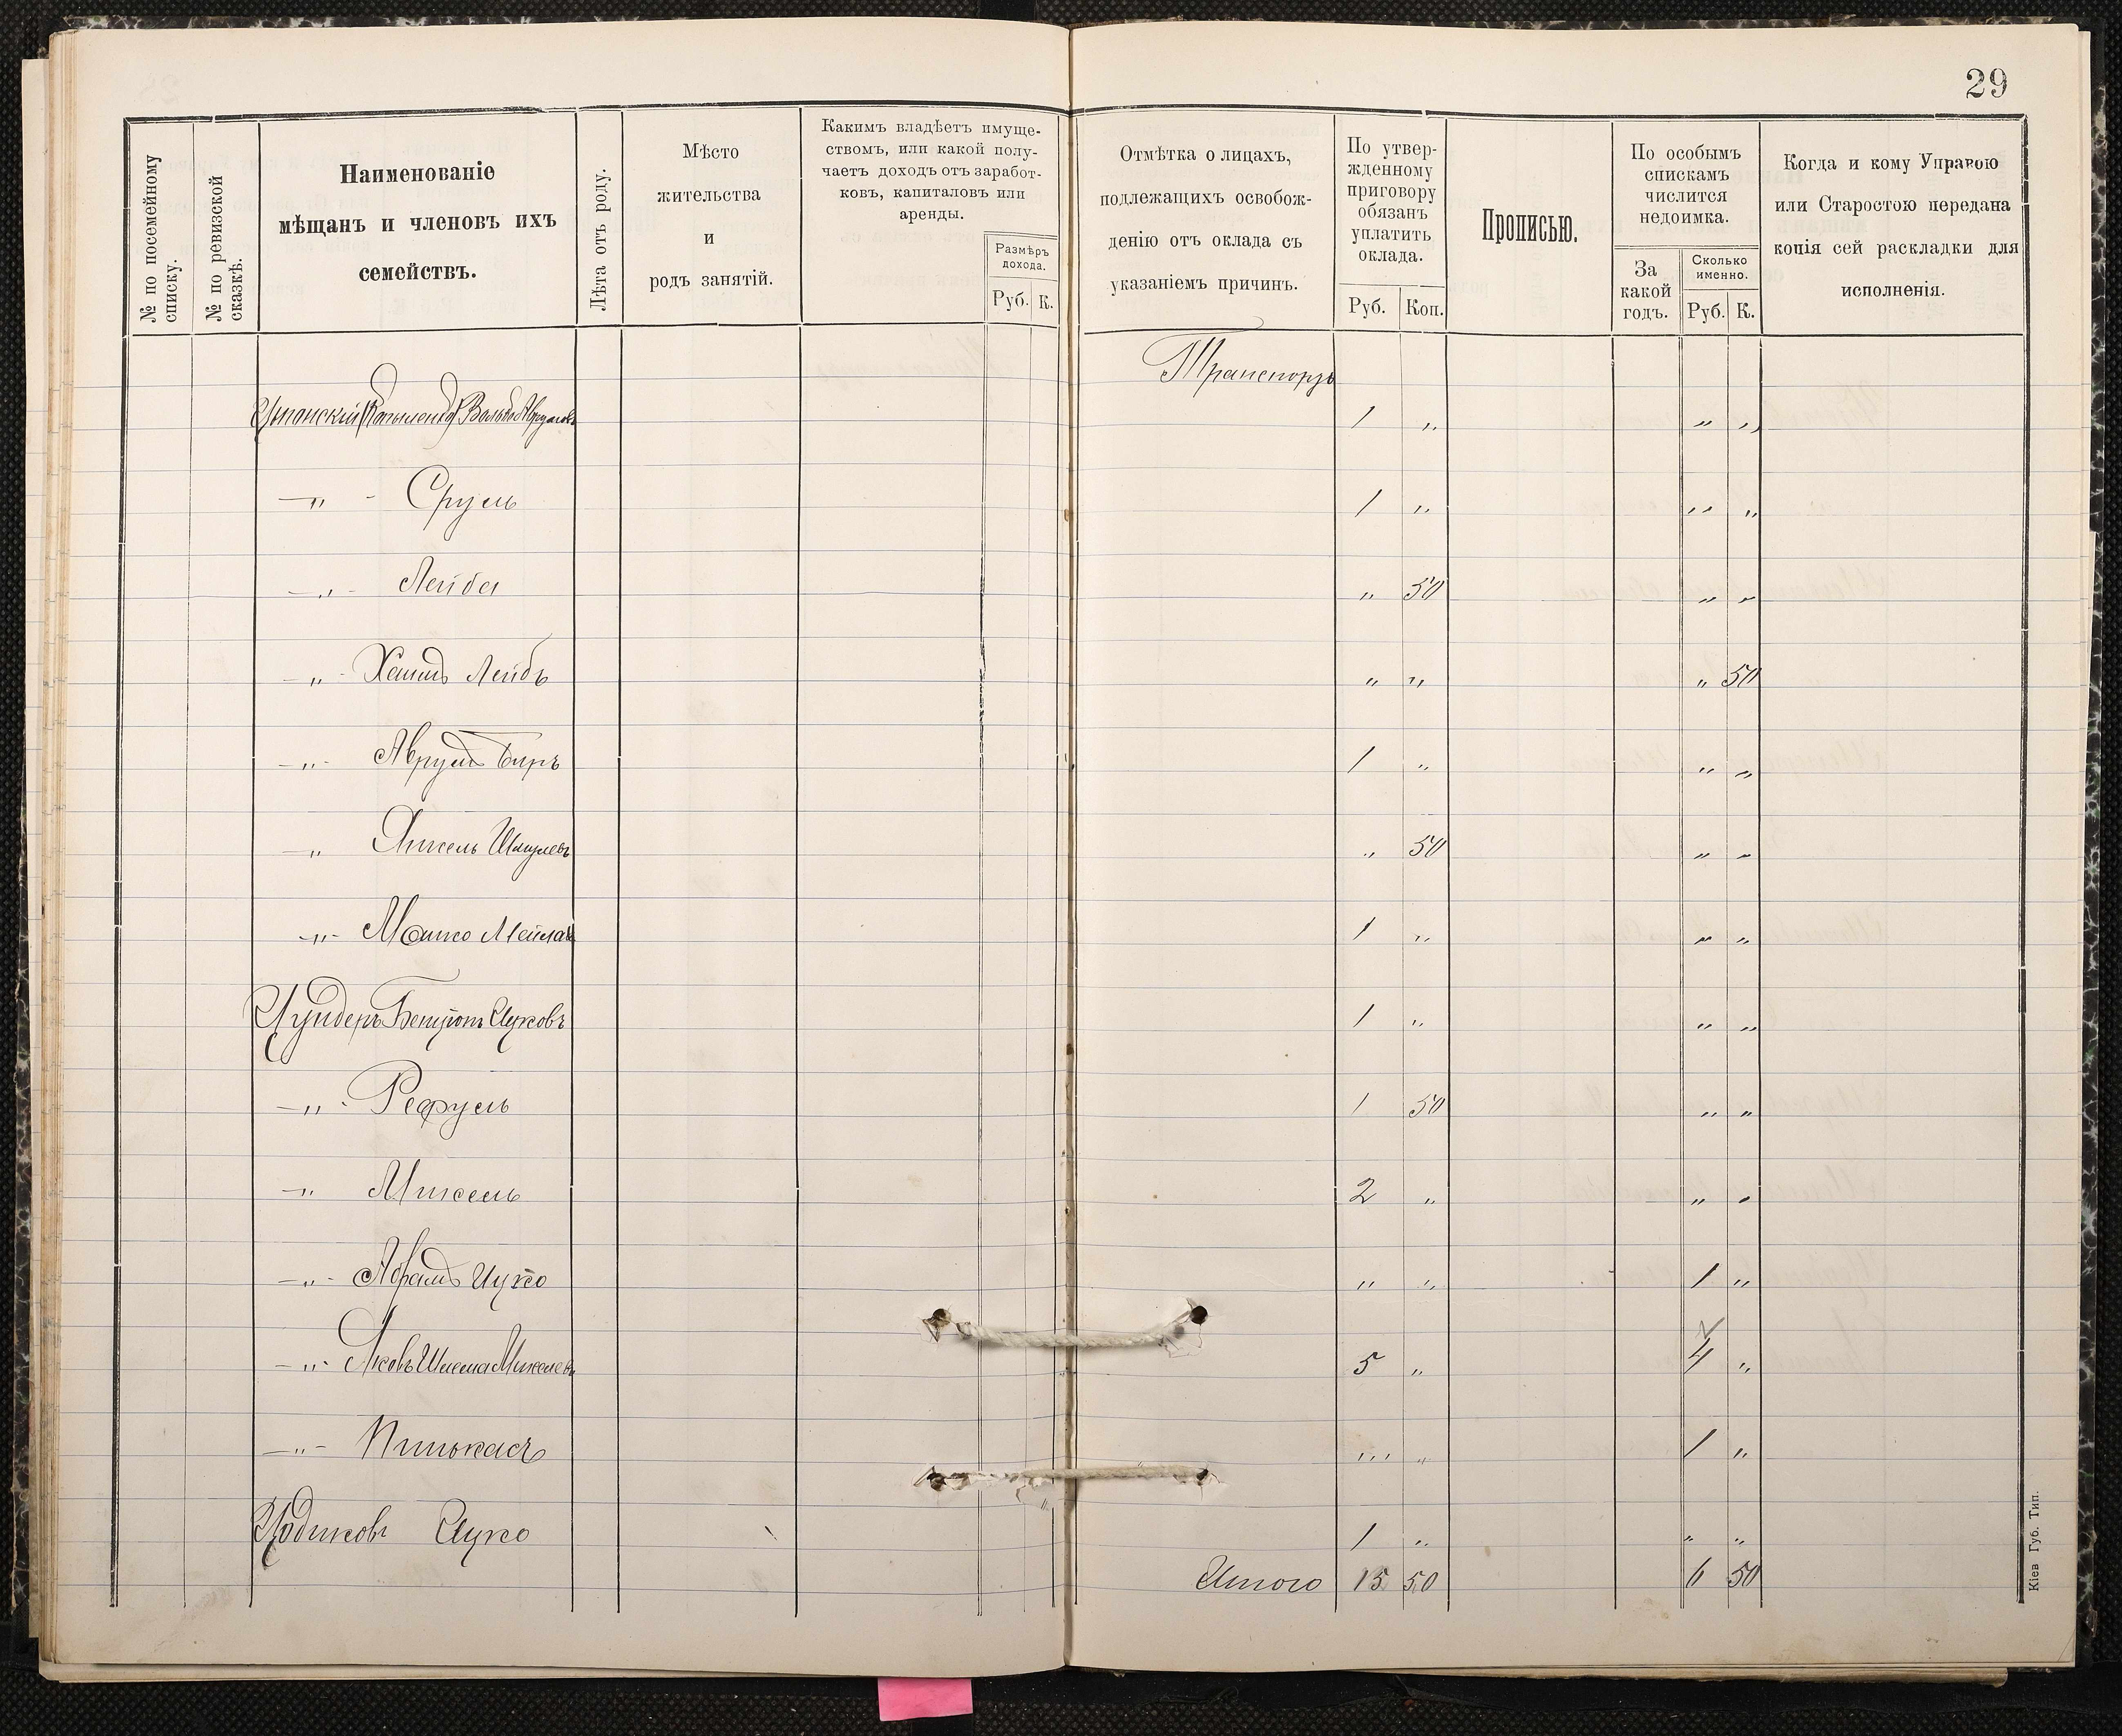 29
№ по посемейному списку.
№ по ревизской сказкѣ.
Наименованіе
мѣщанъ и членовъ ихъ
семействъ.
Лѣта отъ роду.
Мѣсто
жительства
и
родъ занятій.
Какимъ владѣетъ имуще-
ствомъ, или какой полу-
чаетъ доходъ отъ заработ-
ковъ, капиталовъ или
аренды.
Размѣръ
дохода.
Руб. К.
Отмѣтка о лицахъ,
подлежащихъ освобож-
денію отъ оклада съ
указаніемъ причинъ.
По утвер-
жденному
приговору
обязанъ
уплатить
оклада.
Руб. Коп.
Прописью.
По особымъ
спискамъ
числится
недоимка.
За
какой
годъ.
Сколько
именно.
Руб. К.
Когда и кому Управою
или Старостою передана
копія сей раскладки для
исполненія.
Транспортъ
1 „ „ „
–„– Сруль 1 „ „ „
–„– Лейба „ 50 „ „
–„– Хаимъ Лейбъ „ „ „ 50
–„– Аврумъ Беръ 1 „ „ „
–„ Янкель „ 50 „ „
–„– Мошко 1 „ „ „
Цундеръ Ицковъ 1 „ „ „
–„– Рефуль 1 50 „ „
–„ Михель 2 „ „ „
–„– Абрамъ Ицко „ „ 1 „
–„– Яковъ Шлема Михелевъ 5 „ 4 „
–„– Пинькасъ „ „ 1 „
Цодиковъ Ицко 1 „ „ „
Итого 15 50 6 50
Кіев Губ. Тип.